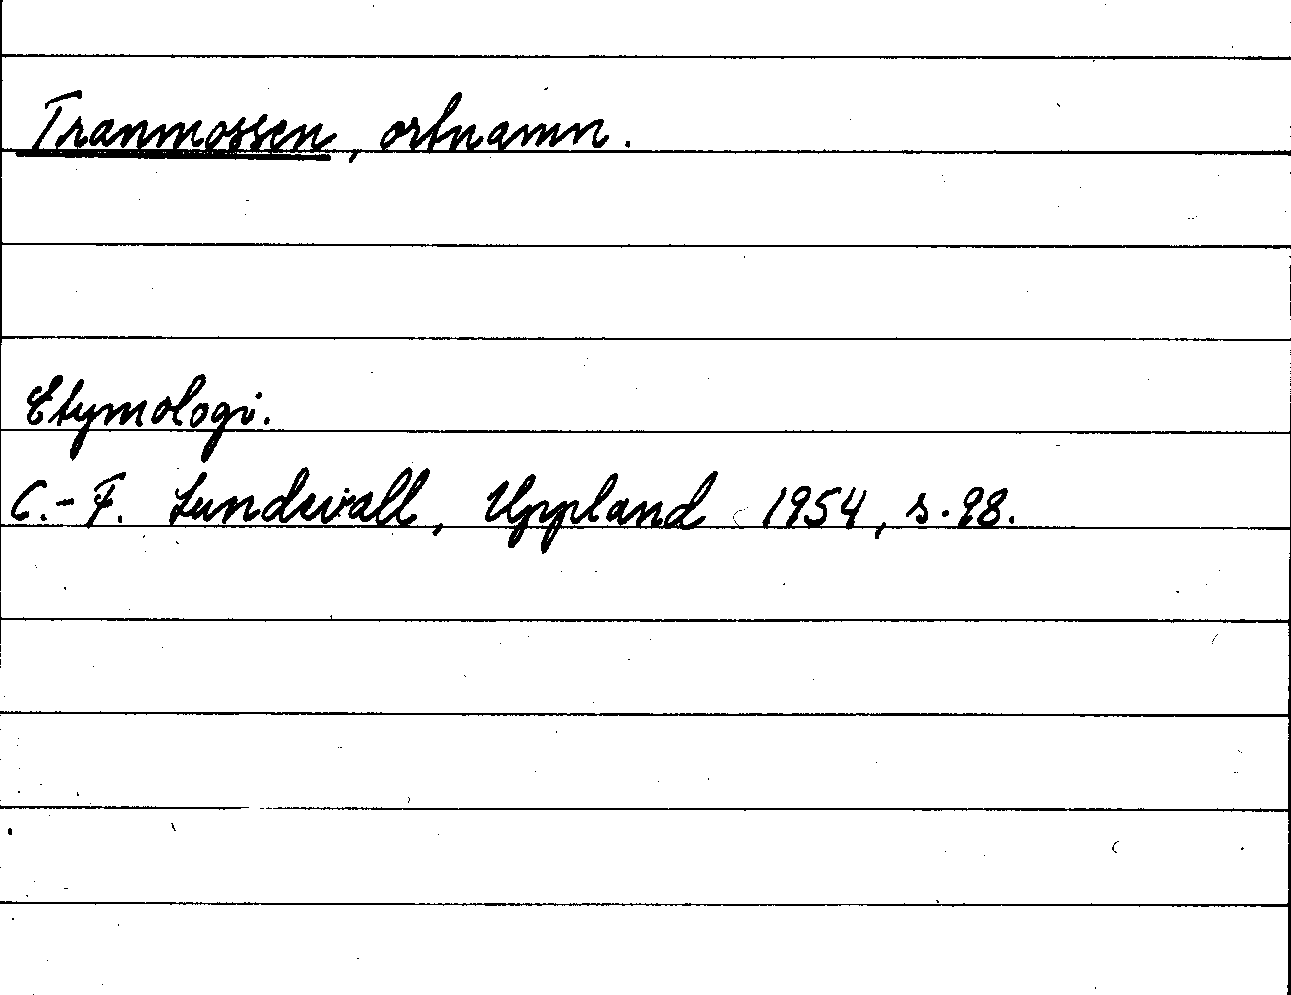 Tranmossen, ortnamn.
Etymologi.
C.-F. Lundevall, Uppland 1954, s. 98.